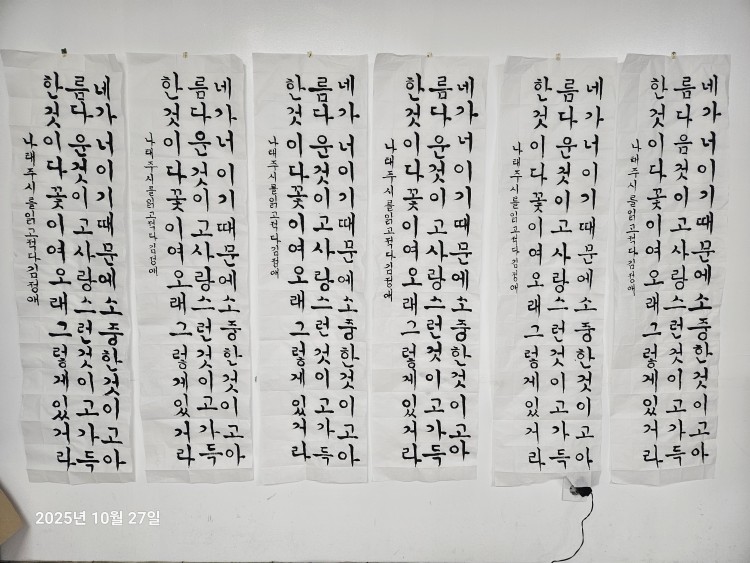 네가너이기때문에소중한것이고아
름다운것이고사랑스런것이고가득
한것이다꽃이여오래그렇게있거라
나태주시를읽고쓰다
네가너이기때문에소중한것이고아
름다운것이고사랑스런것이고가득
한것이다꽃이여오래그렇게있거라
나태주시를읽고쓰다
네가너이기때문에소중한것이고아
름다운것이고사랑스런것이고가득
한것이다꽃이여오래그렇게있거라
나태주시를읽고쓰다
네가너이기때문에소중한것이고아
름다운것이고사랑스런것이고가득
한것이다꽃이여오래그렇게있거라
나태주시를읽고쓰다
네가너이기때문에소중한것이고아
름다운것이고사랑스런것이고가득
한것이다꽃이여오래그렇게있거라
나태주시를읽고쓰다
네가너이기때문에소중한것이고아
름다운것이고사랑스런것이고가득
한것이다꽃이여오래그렇게있거라
나태주시를읽고쓰다
2025년 10월 27일